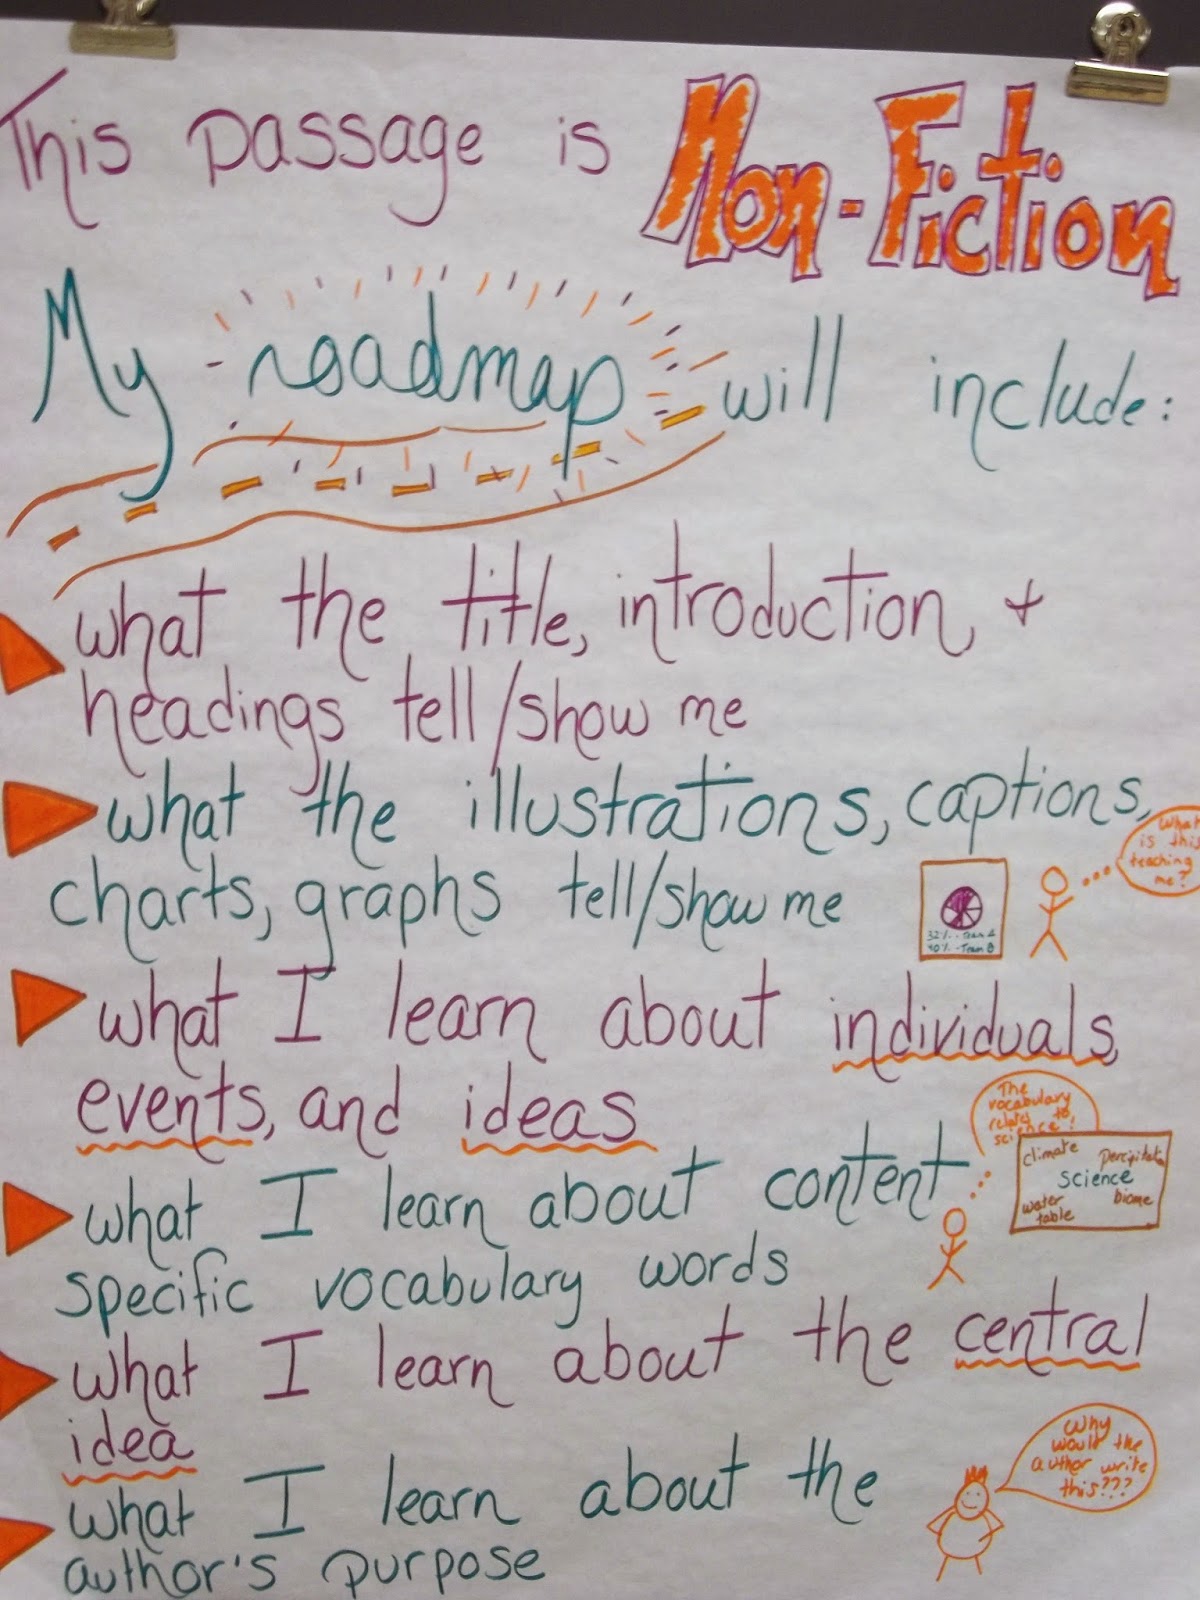 This passage is Non-Fiction
My roadmap will include:
what the title, introduction, +
headings tell/show me
what the illustrations, captions,
charts, graphs tell/show me
What
is this
teaching
me?
32% - Team A
40% - Team B
what I learn about individuals,
events, and ideas
The
vocabulary
relates to
science!
climate percipitatio
science
water biome
table
what I learn about content
specific vocabulary words
what I learn about the central
idea
what I learn about the
author's purpose
Why
would the
author write
this???